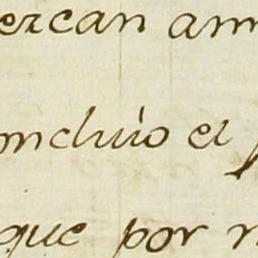 ercan am
oncluio el p
que por n